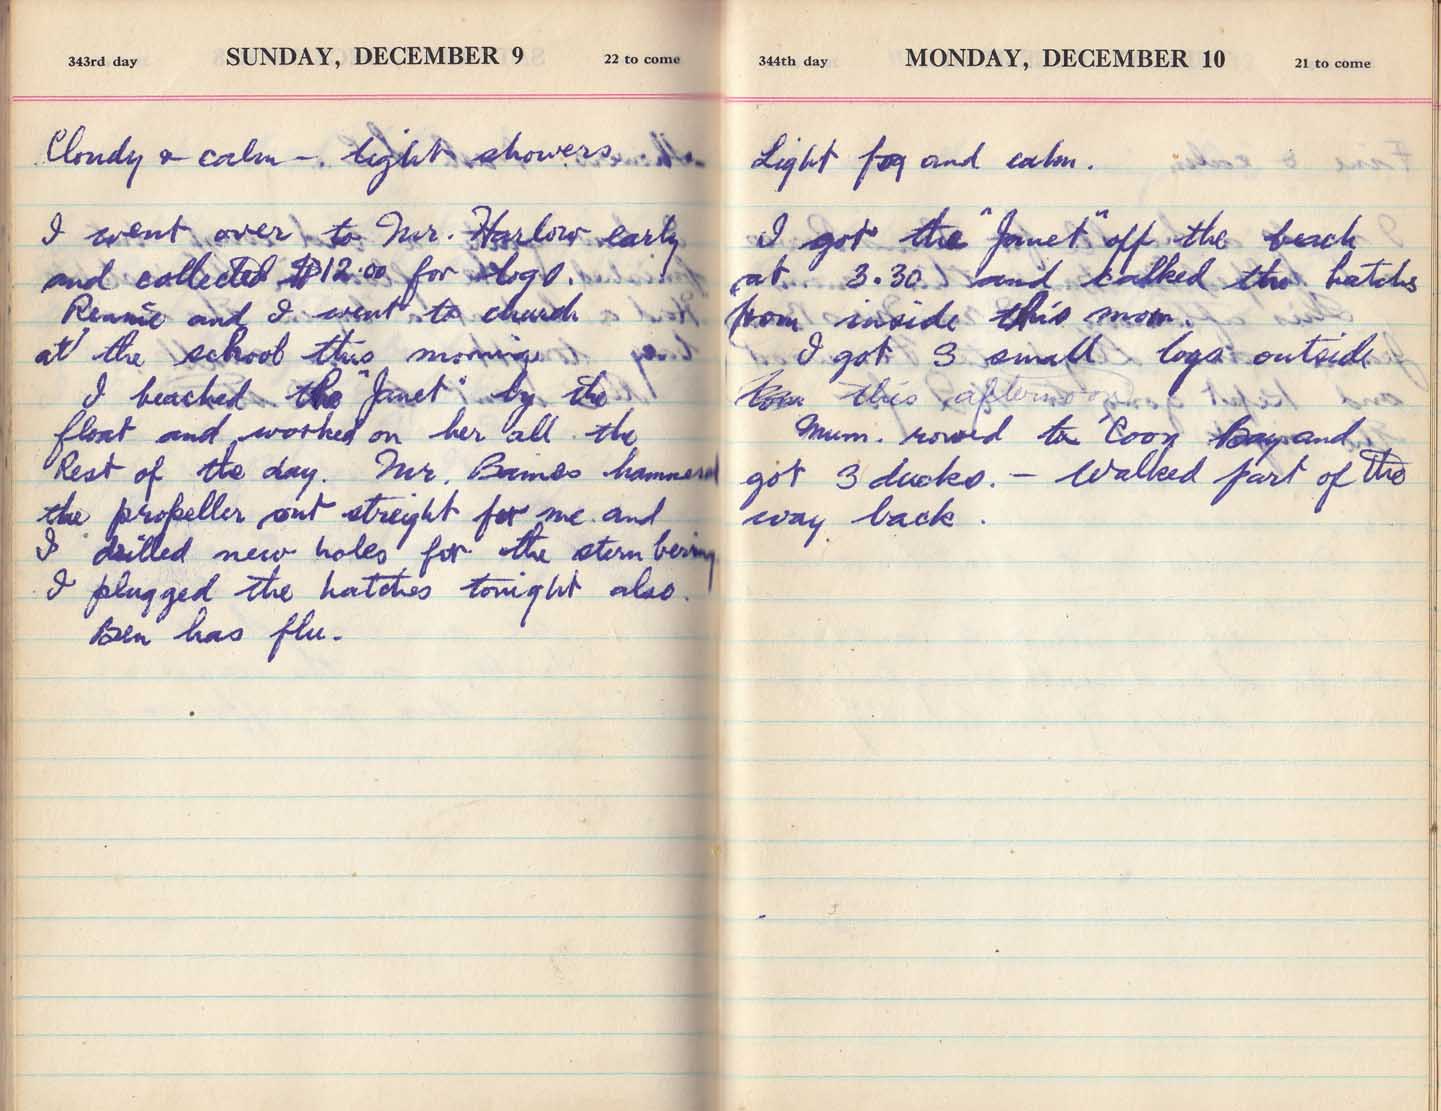 343rd day SUNDAY, DECEMBER 9 22 to come
Cloudy & calm -. light showers.
I went over to Mr. Harlow early
and collected $12.00 for logs.
Rennie and I went to church
at the school this morning
I beached the "Janet" by the
float and worked on her all the
Rest of the day. Mr. Baines hammered
the propeller out streight for me and
I drilled new holes for the stern bering
I plugged the hatches tonight also.
Ben has flu.
344th day MONDAY, DECEMBER 10 21 to come
Light fog and calm.
I got the "Janet" off the beach
at 3.30 and calked the hatches
from inside this morn.
I got 3 small logs outside
this afternoon
Mum. rowed to "Coon Bay and
got 3 ducks. - Walked part of the
way back.